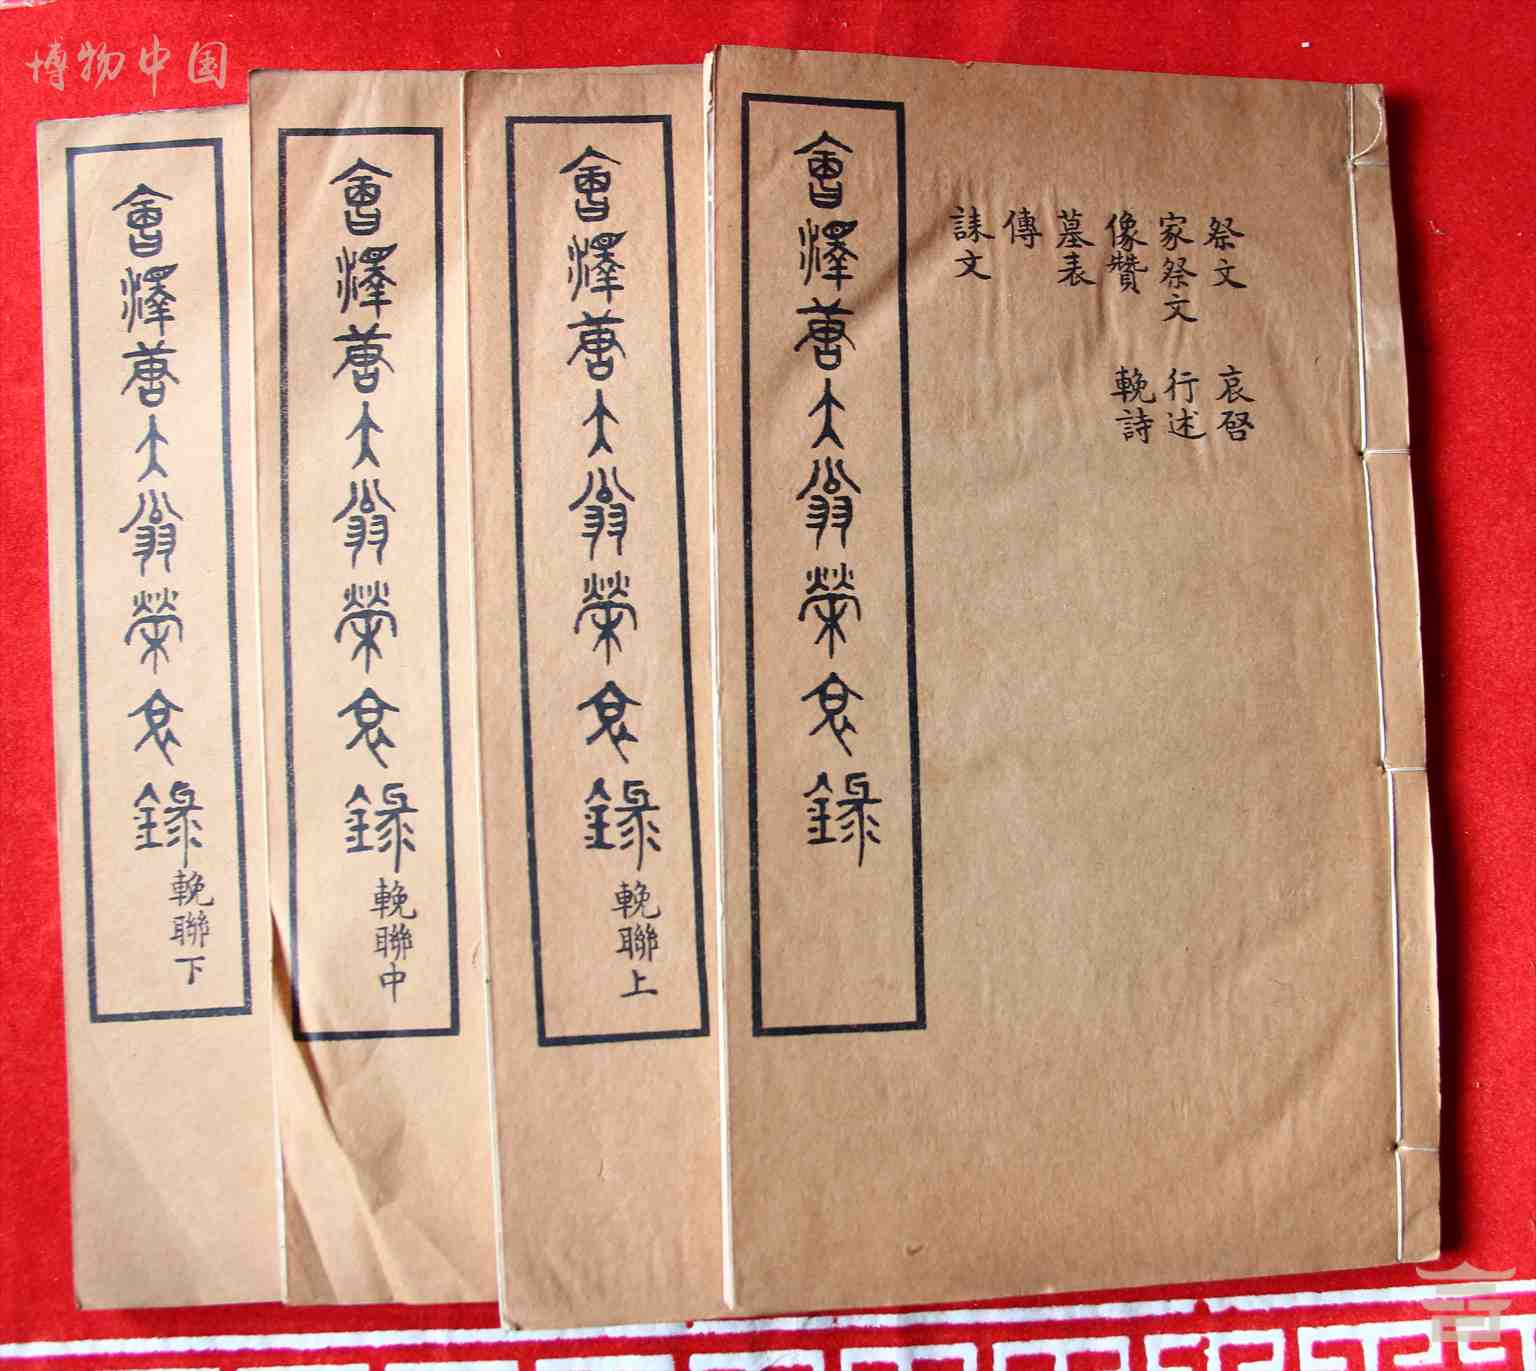 祭文 哀啓
家祭文 行述
像贊 輓詩
墓表
傳
誄文
會澤唐大翁榮哀錄
會澤唐大翁榮哀錄 輓聯上
會澤唐大翁榮哀錄 輓聯中
會澤唐大翁榮哀錄 輓聯下
博物中国